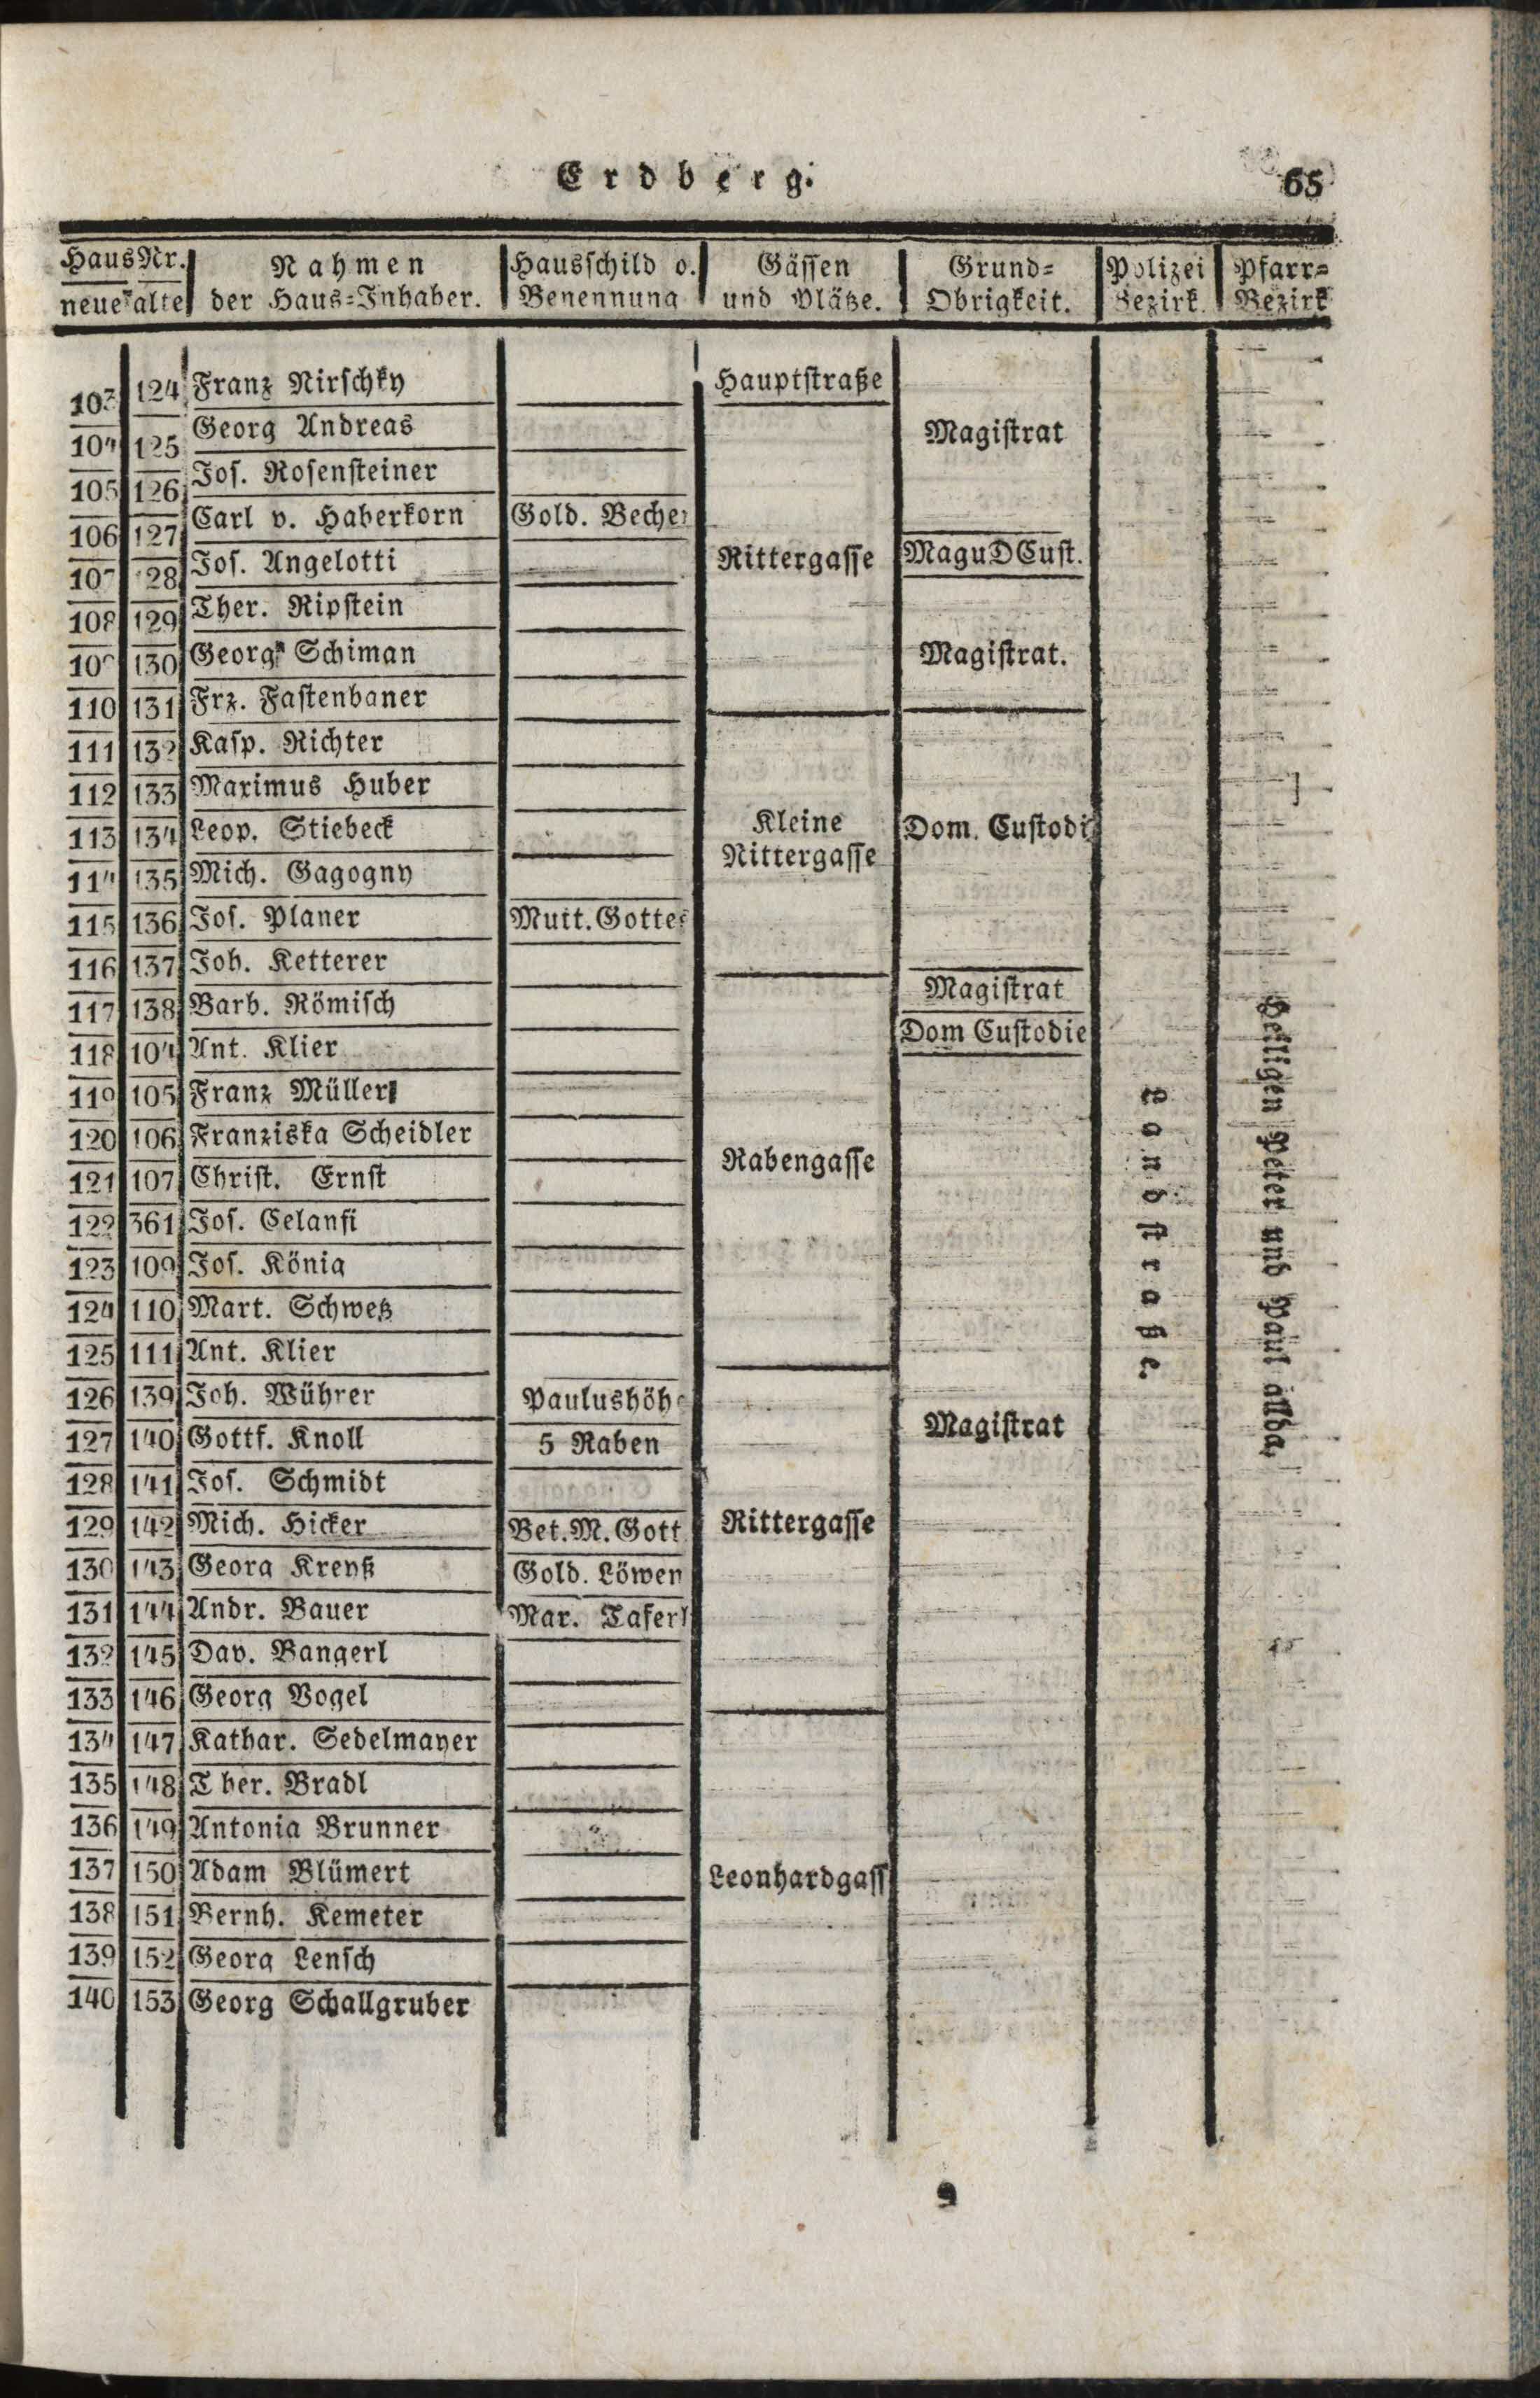 Erdberg.
65
HausNr. Nahmen Hausschild o. Gässen Grund= Polizei Pfarr=
neue alte der Haus=Inhaber. Benennung und Plätze. Obrigkeit. Bezirk Bezirk
103 124 Franz Nirschky Hauptstraße
104 125 Georg Andreas Magistrat
105 126 Jos. Rosensteiner
106 127 Carl v. Haberkorn Gold. Becher
107 128 Jos. Angelotti Rittergasse MaguDCust.
108 129 Ther. Ripstein
109 130 Georg Schiman Magistrat.
110 131 Frz. Fastenbaner
111 132 Kasp. Richter
112 133 Maximus Huber
113 134 Leop. Stiebeck Kleine Rittergasse Dom. Custodi
114 135 Mich. Gagogny
115 136 Jos. Planer Mutt. Gottes
116 137 Joh. Ketterer
117 138 Barb. Römisch Magistrat
118 104 Ant. Klier Dom Custodie
119 105 Franz Müller
120 106 Franziska Scheidler
121 107 Christ. Ernst Rabengasse
122 361 Jos. Celansi
123 109 Jos. König
124 110 Mart. Schwetz
125 111 Ant. Klier
126 139 Joh. Wührer Paulushöhe
127 140 Gottf. Knoll 5 Raben Magistrat
128 141 Jos. Schmidt
129 142 Mich. Hicker Bet. M. Gott Rittergasse
130 143 Georg Kreyß Gold. Löwen
131 144 Andr. Bauer Mar. Taferl
132 145 Dav. Bangerl
133 146 Georg Vogel
134 147 Kathar. Sedelmayer
135 148 Ther. Bradl
136 149 Antonia Brunner
137 150 Adam Blümert Leonhardgass
138 151 Bernh. Kemeter
139 152 Georg Lensch
140 153 Georg Schallgruber
Landstraße.
Heiligen Peter und Paul allda.
9